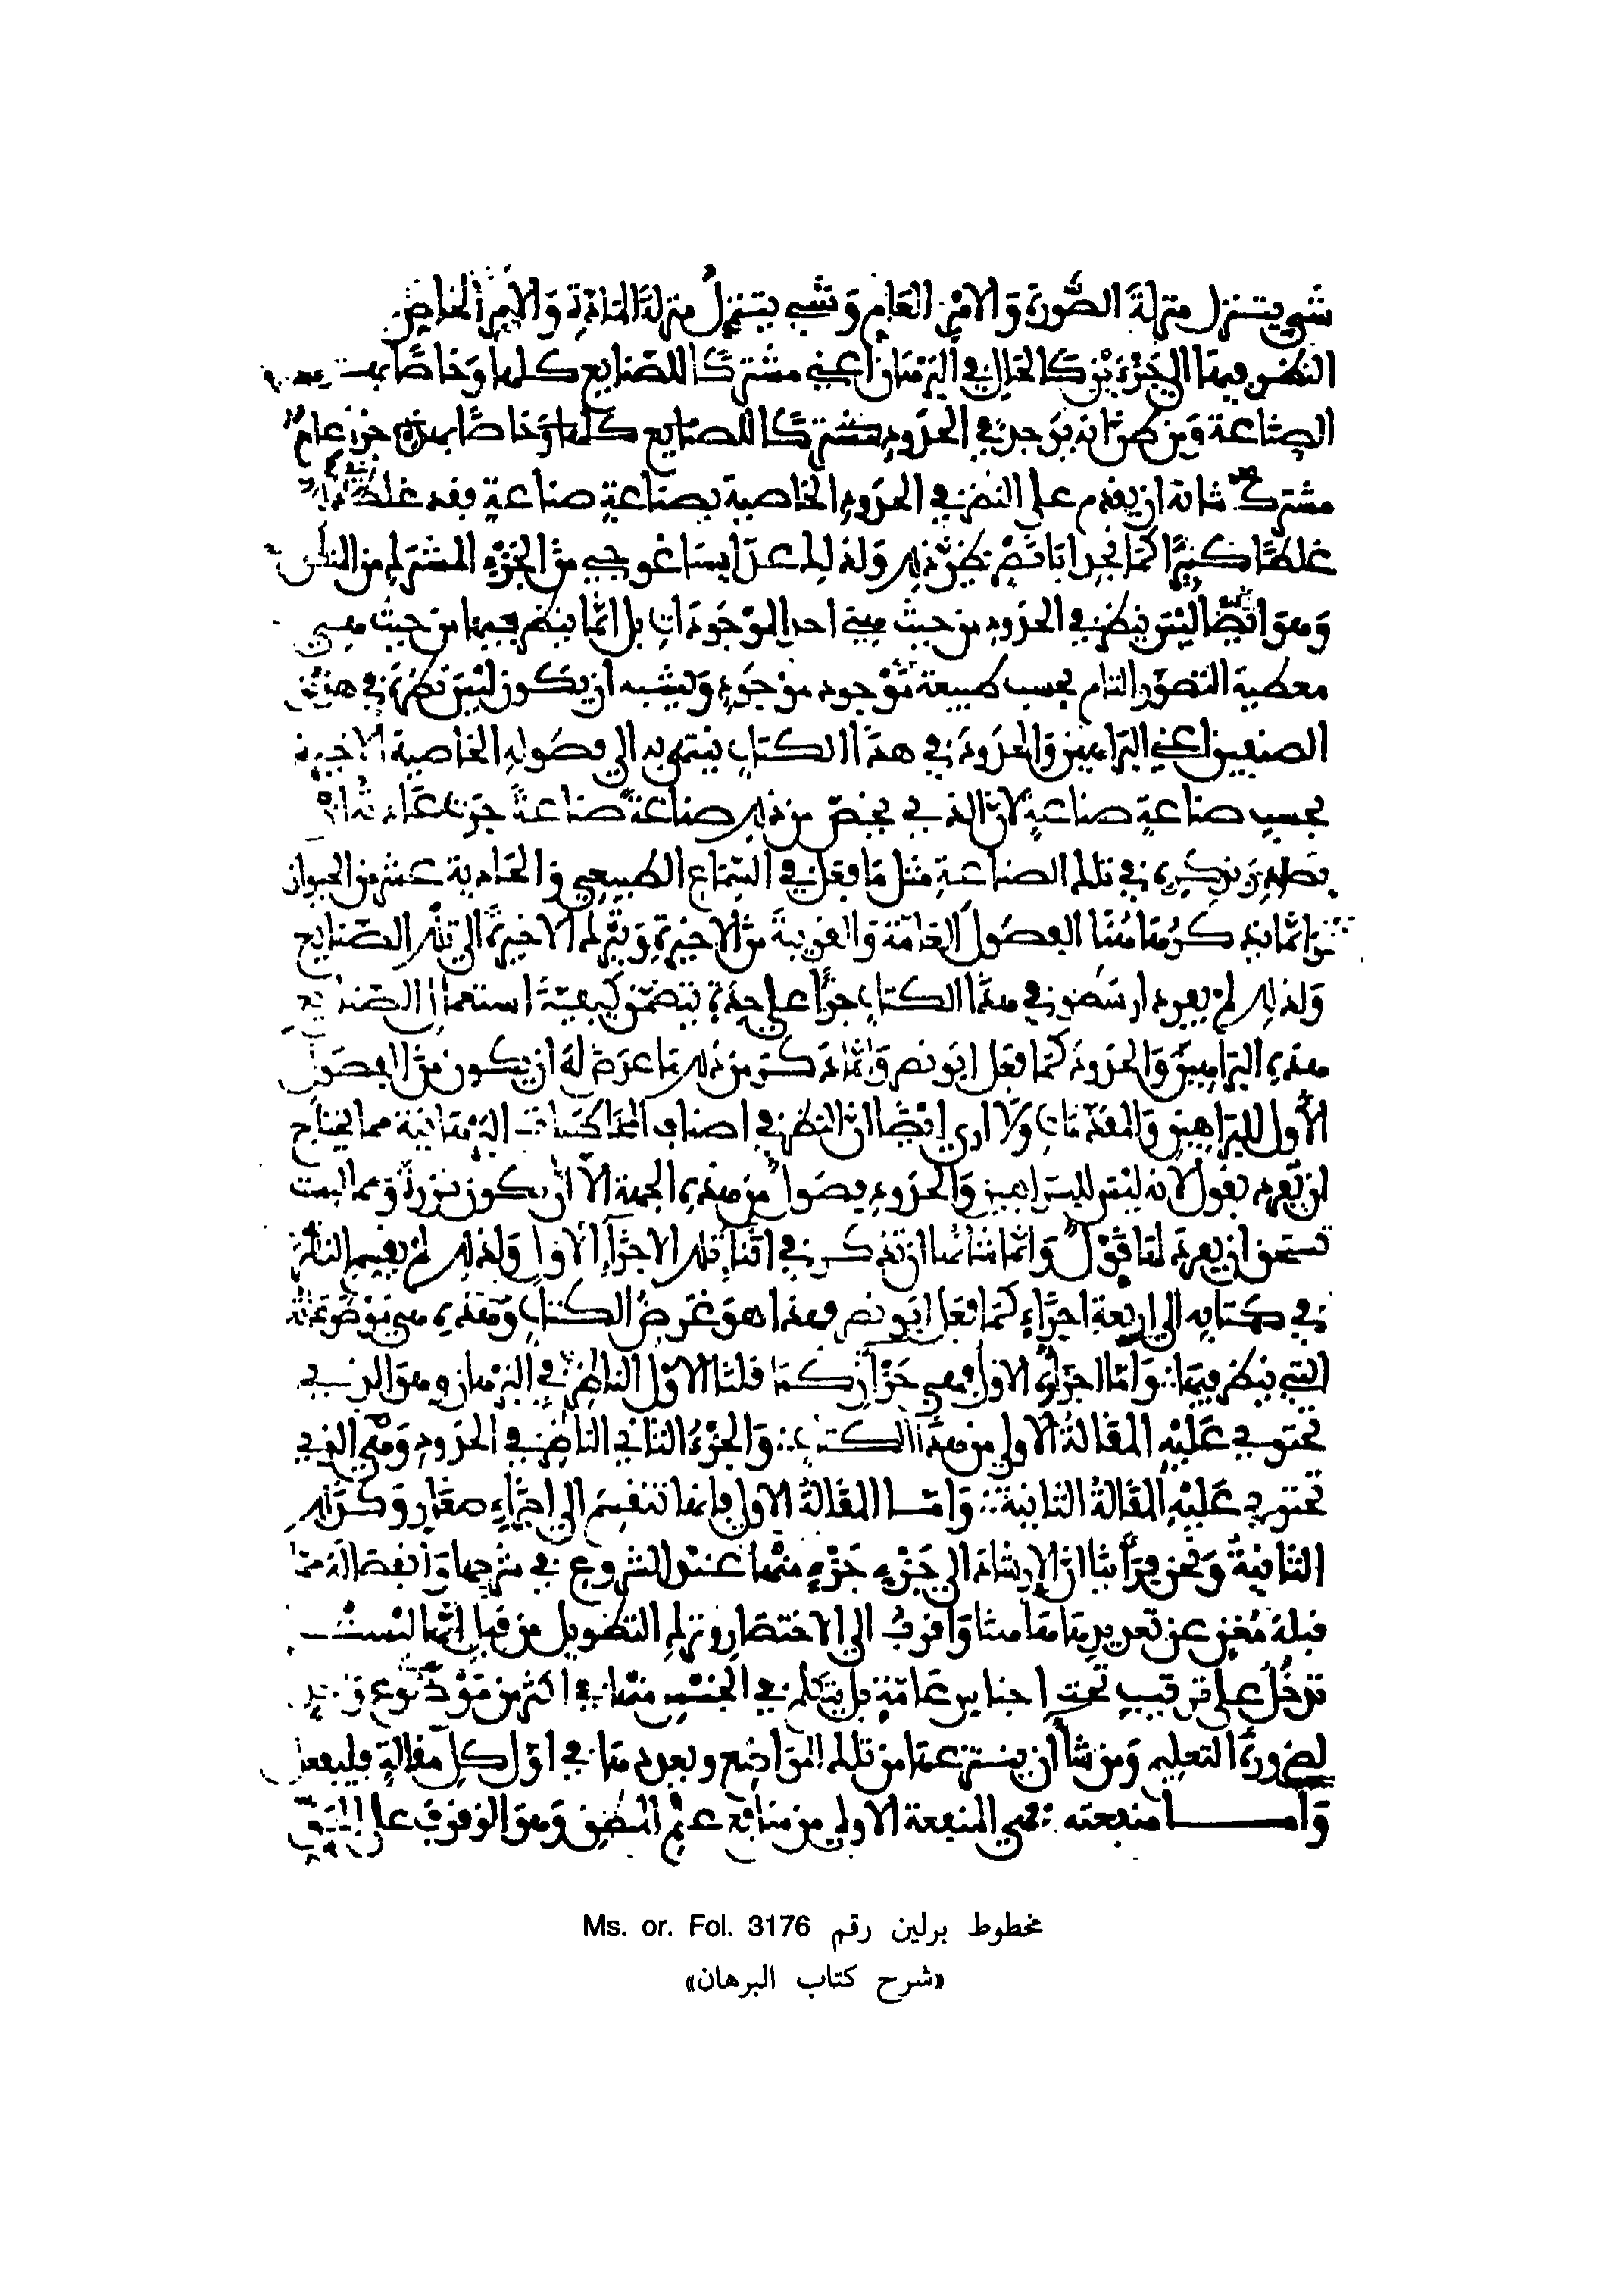 شي يتنزل منزلة الصُّورة والامر العام وشي يتنزل منزلة المادة والامر الخاص
النظر فيها الى جزءين كالحال في البرهان اعني مشتركا للصنايع كلها وخاصا
الصناعة ومن ظن انه ليس يوجد في الحدود مشتركا للصنايع كلها وخاصا جزء عام
مشترك شانه ان يقدم على النظر في الحدود الخاصية بصناعة صناعة فقد غلط
غلطا كثيرا كما نجد ابا نصر يظن ذلك ولذلك عد ايساغوجي من الجزء المشترك من النظر
وهو ايضا ليس ينظر في الحدود من حيث هي احد الموجودات بل انما ينظر فيها من حيث هي
معطية التصور التام بحسب طبيعة موجود موجود ويشبه ان يكون ليس نظره في هذين
الصنفين اعني البراهين والحدود في هذا الكتاب ينتهي به الى فصوله الخاصية الاخيرة
بحسب صناعة صناعة لان الذي يخص من ذلك صناعة صناعة جرت عادته ان
في تلك الصناعة مثل ما فعل في السماع الطبيعي والحادية عشر من الحيوان
انما يذكر هاهنا الفصول العامة والقريبة من الاخيرة ويترك الاخيرة الى تلك الصنايع
ولذلك لم يفرد ارسطو في هذا الكتاب جزءا على حدة يتضمن كيفية استعمال الصنايع
هذه البراهين والحدود كما فعل ابو نصر وانما ذكر من ذلك ما عرض له ان يكون من الفصول
الأول للبراهين والمقدمات ولا ارى ايضا ان النظر في اصناف المخاطبات البرهانية مما يحتاج
ان يفرد بقول لانه ليس للبراهين والحدود فصول من هذه الجهة الا ان يكون نزرة ومما ليست
تستحق ان يفرد لها قول وانما شانها ان تذكر في اثناء تلك الاجزاء الاول ولذلك لم يقسم النظر
في كتابه الى اربعة اجزاء كما فعل ابو نصر فهذا هو غرض الكتاب وهذه هي موضوعاته
التي ينظر فيها واما اجزاؤه الاول فهي جزآن كما قلنا الاول الناظر في البرهان وهو الذي
تحتوي عليه المقالة الاولى من هذا الكتاب والجزء الثاني الناظر في الحدود وهي الذي
تحتوي عليه المقالة الثانية واما المقالة الاولى فانها تنقسم الى اجزاء صغار وكذلك
الثانية ونحن فرأينا ان الارشاد الى جزء جزء منها عند الشروع في شرحها وانفصاله مما
قبله مُغن عن تعديدها هاهنا واقرب الى الاختصار وترك التطويل من قبل انها ليست
تدخل على ترتيب تحت اجناس عامة بل يتكلم في الجنس منها في اكثر من موضوع
لضرورة التعليم ومن شا ان ينتزعها من تلك المواضع ويعددها في اول كل مقالة فليفعل
وامـــا منفعته فهي المنفعة الاولى من منافع علم المنطق وهو الوقوف على الحق
مخطوط برلين رقم Ms. or. Fol. 3176
«شرح كتاب البرهان»